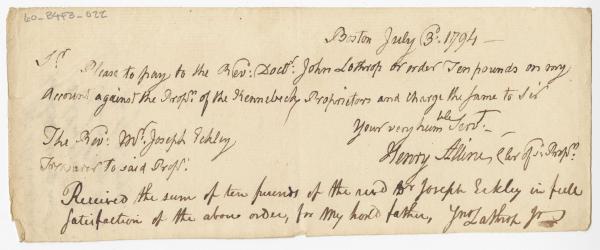 60-8483-022
Boston July 3d. 1794 —
Sr. Please to pay to the Revd. Doctr. John Lathrop or order Ten pounds on my
Account against the Props. of the Kennebeck Proprietors and charge the same to Sir
Your very humble Servt. —
The Revd. Mr. Joseph Eckley
Henry Alline, Clar of sd. Props.
Treasurer to said Props.
Received the sum of ten pounds of the revd Mr Joseph Eckley in full
Satisfaction of the above order, for my hond father, Jno Lathrop Jr